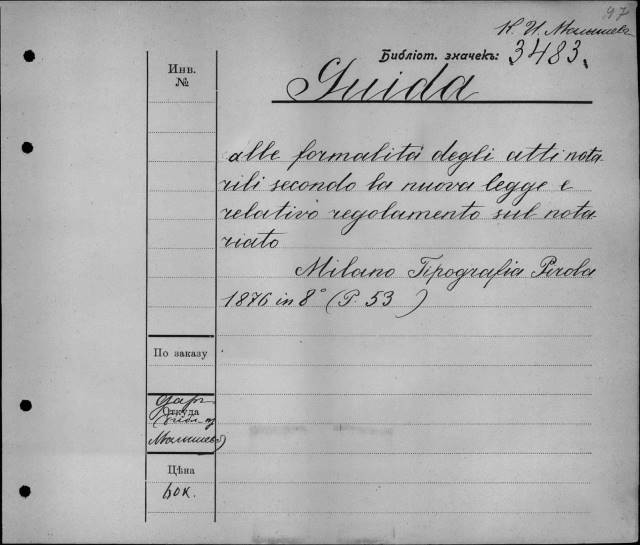 97
К. И. Малышева
Библіот. значекъ: 3483.
Guida
Инв.
№
alle formalità degli atti nota
rili secondo la nuova legge e
relativo regolamento sul nota
riato
Milano Tipografia Pirola
1876 in 8° (P. 53)
По заказу
Даръ
Откуда
Малышева)
Цѣна
60к.